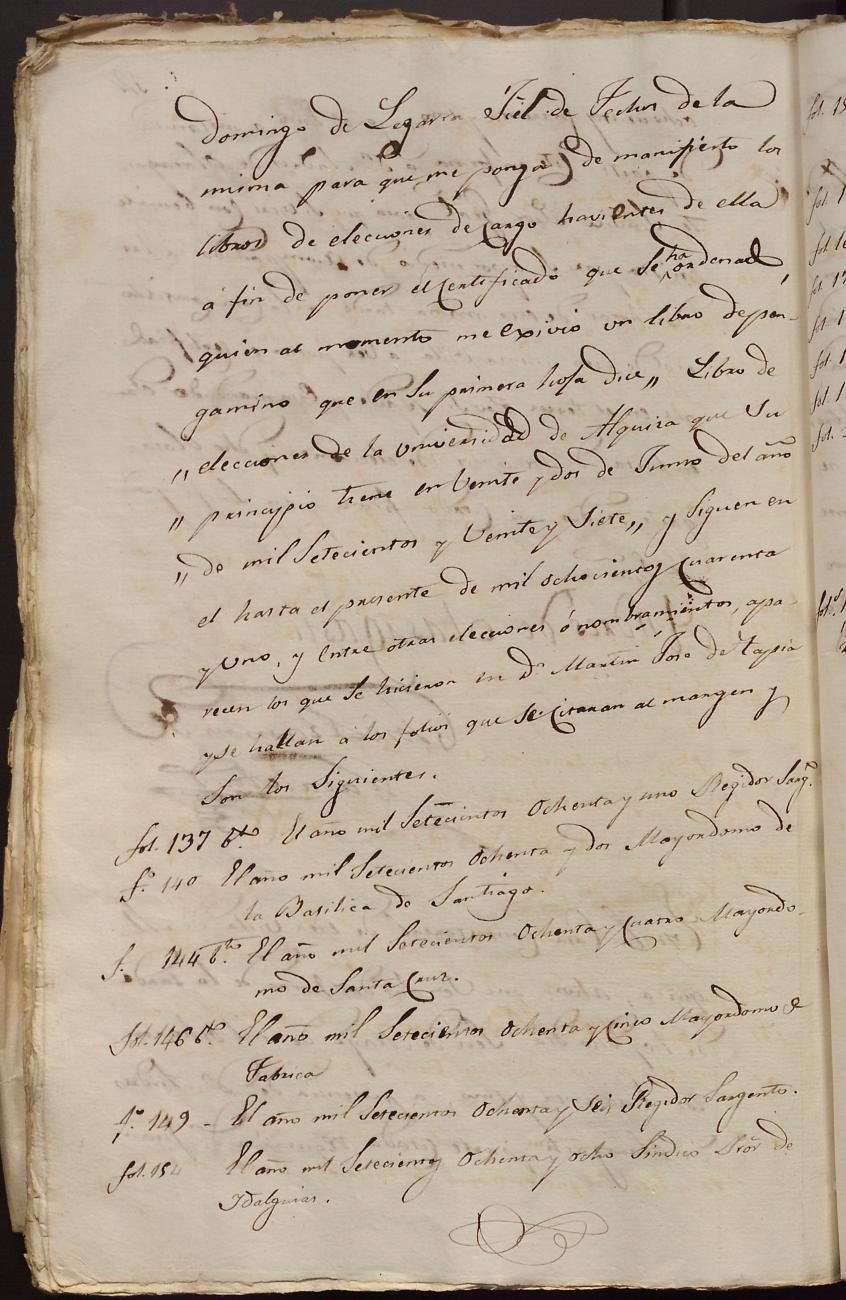 Domingo de Legarra Fiel de Fechos de la
misma para que me ponga de manifiesto los
libros de elecciones de Cargo havientes de ella
á fin de poner el Certificado que se ha ordenado,
quien al momento me exivio un libro de per-
gamino que en su primera hoja dice „ Libro de
„ elecciones de la Universidad de Alquiza que su
„ principio tiene en Veinte y dos de Junio del año
„ de mil Setecientos y Veinte y Siete„ y siguen en
el hasta el presente de mil ochocientos Cuarenta
y Uno, y entre otras elecciones ó nombramientos, apa-
recen los que se hicieron en Dn. Martin José de Tapia
y se hallan á los folios que se Citaran al margen y
Son los Siguientes.
fol. 137 bto El año mil Setecientos Ochenta y uno Regidor Sargto.
fo. 140 El año mil Setecientos Ochenta y dos Mayordomo de
la Basilica de Santiago.
f. 144 bto. El año mil Setecientos Ochenta y Cuatro Mayordo-
mo de Santa Cruz.
fol. 146 bto. El año mil Setecientos Ochenta y Cinco Mayordomo de
Fabrica
fo. 149 - El año mil Setecientos Ochenta y Seis Regidor Sargento.
fol. 154 El año mil Setecientos Ochenta y ocho Sindico Pror. de
Idalguias.